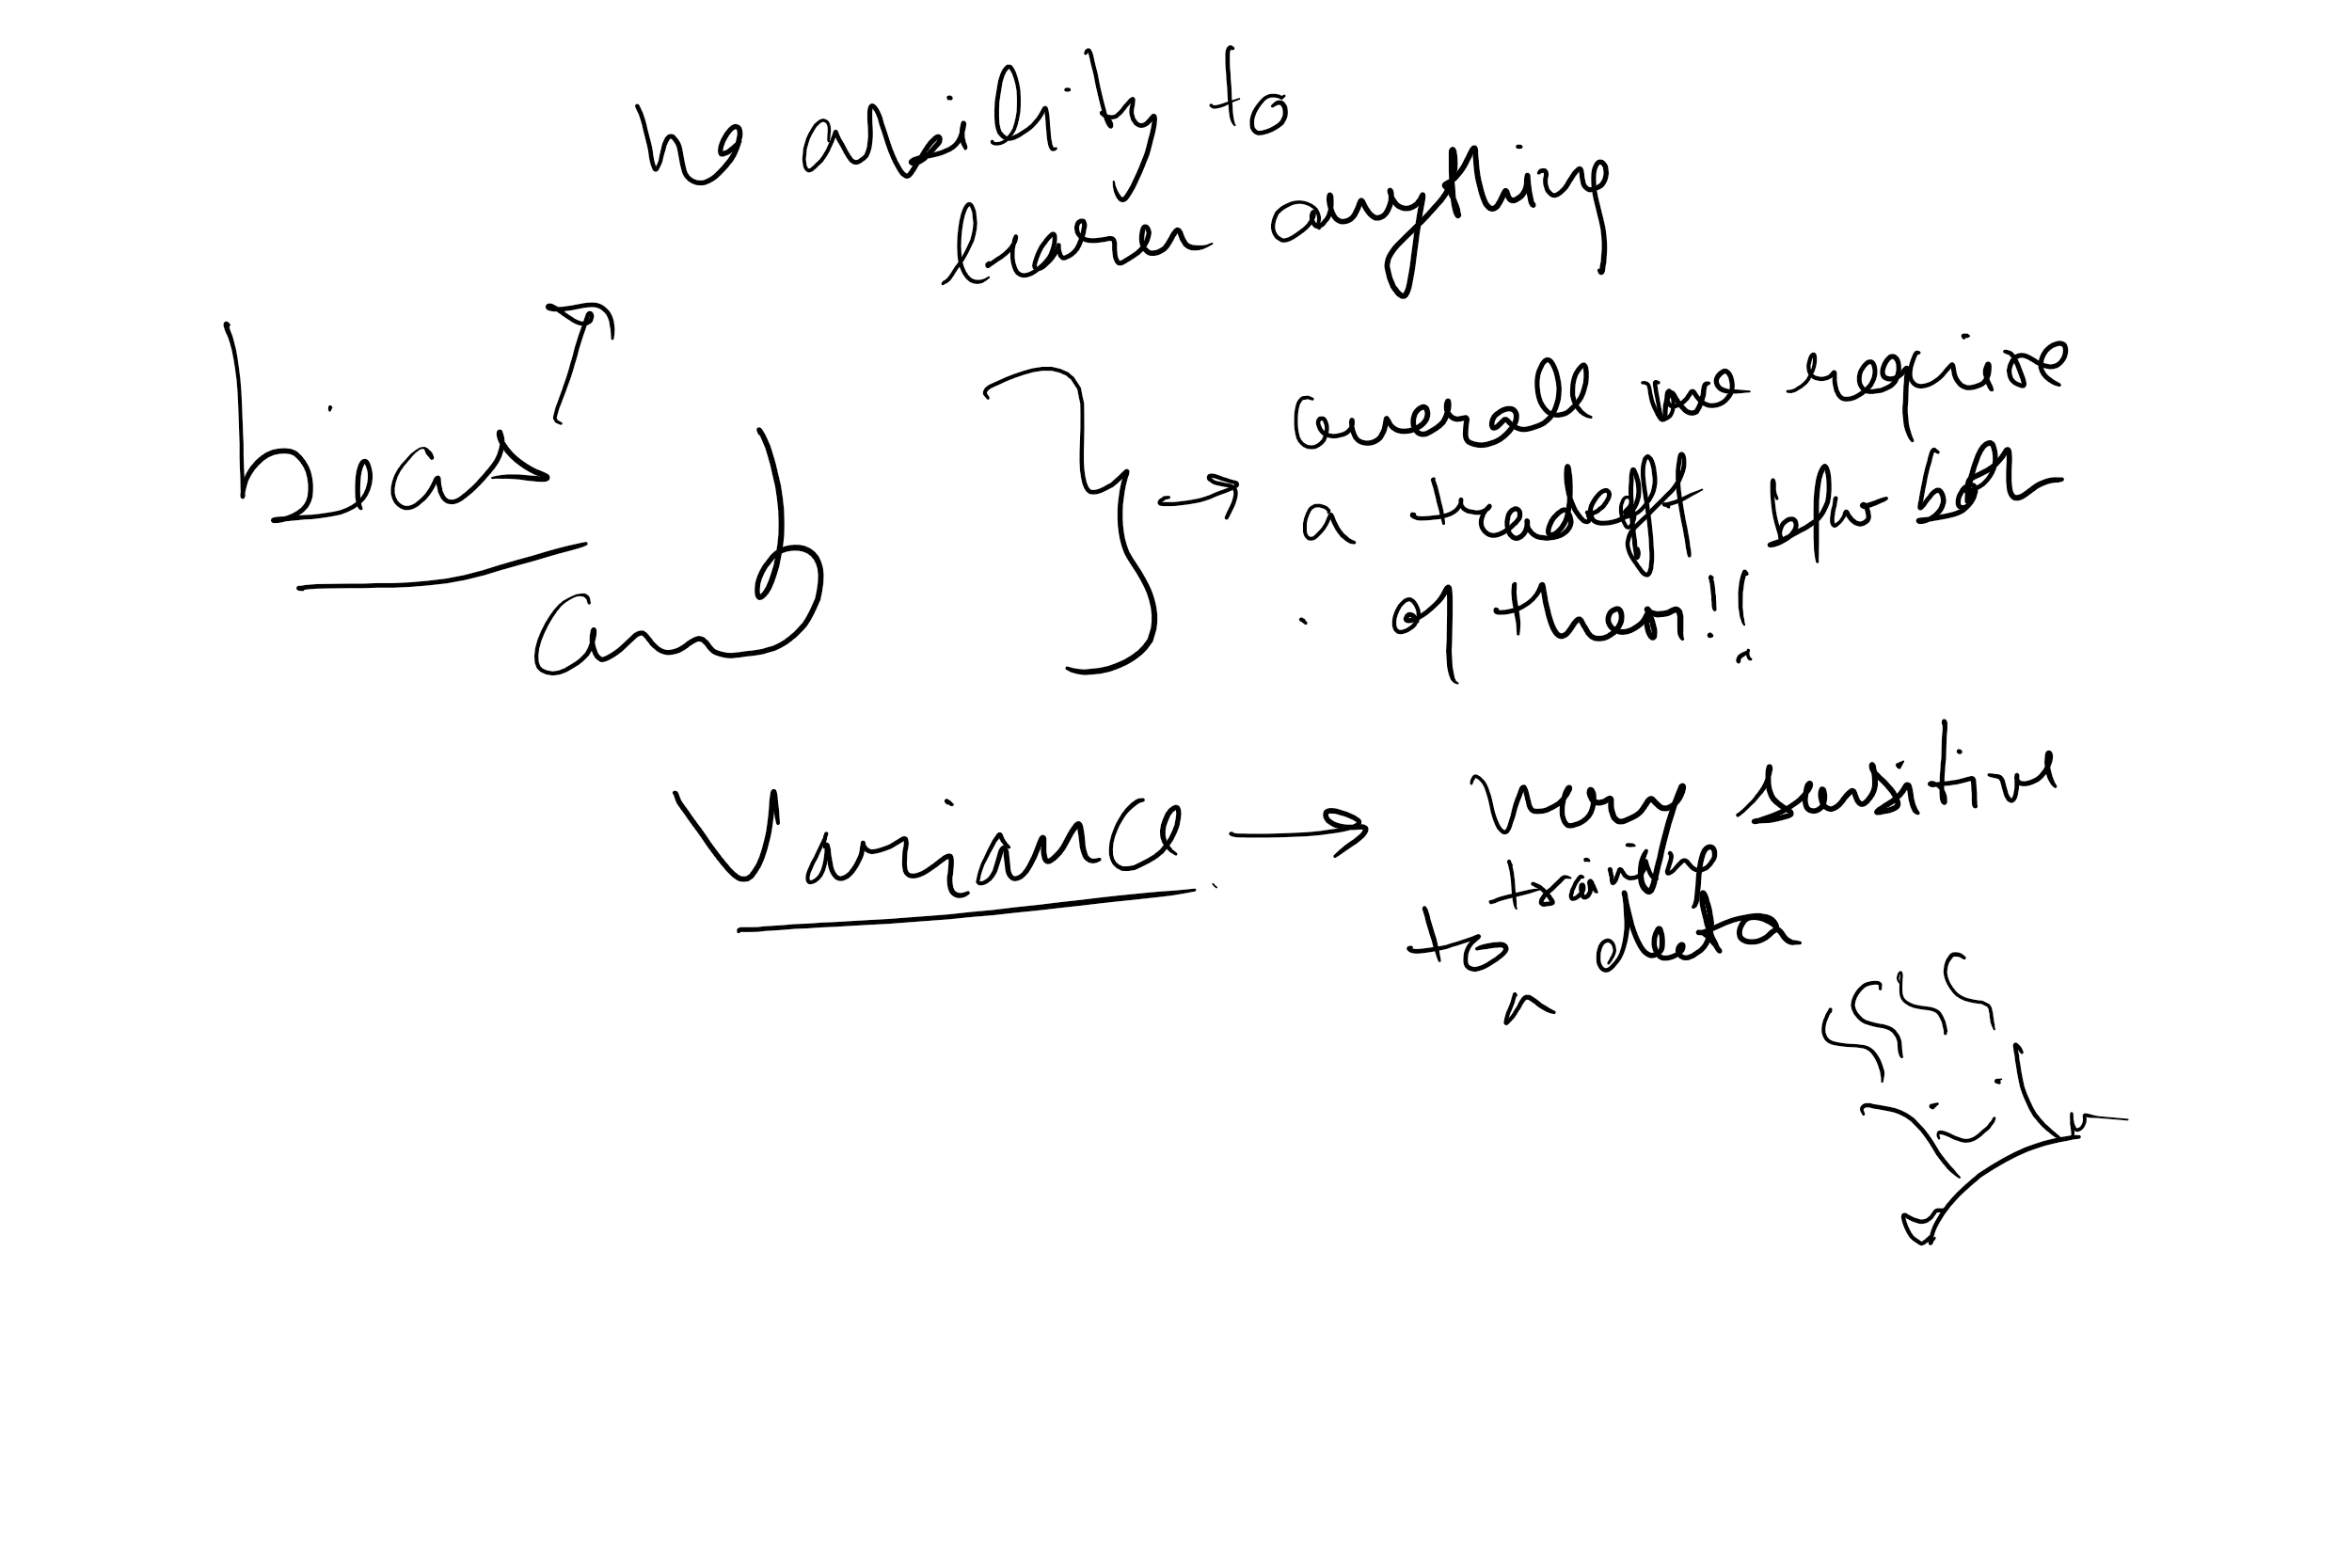 no ability to
learn anything
bias
and
overall we require
a tradeoff for both
of them!!
Variance
very sensitive
to training
data